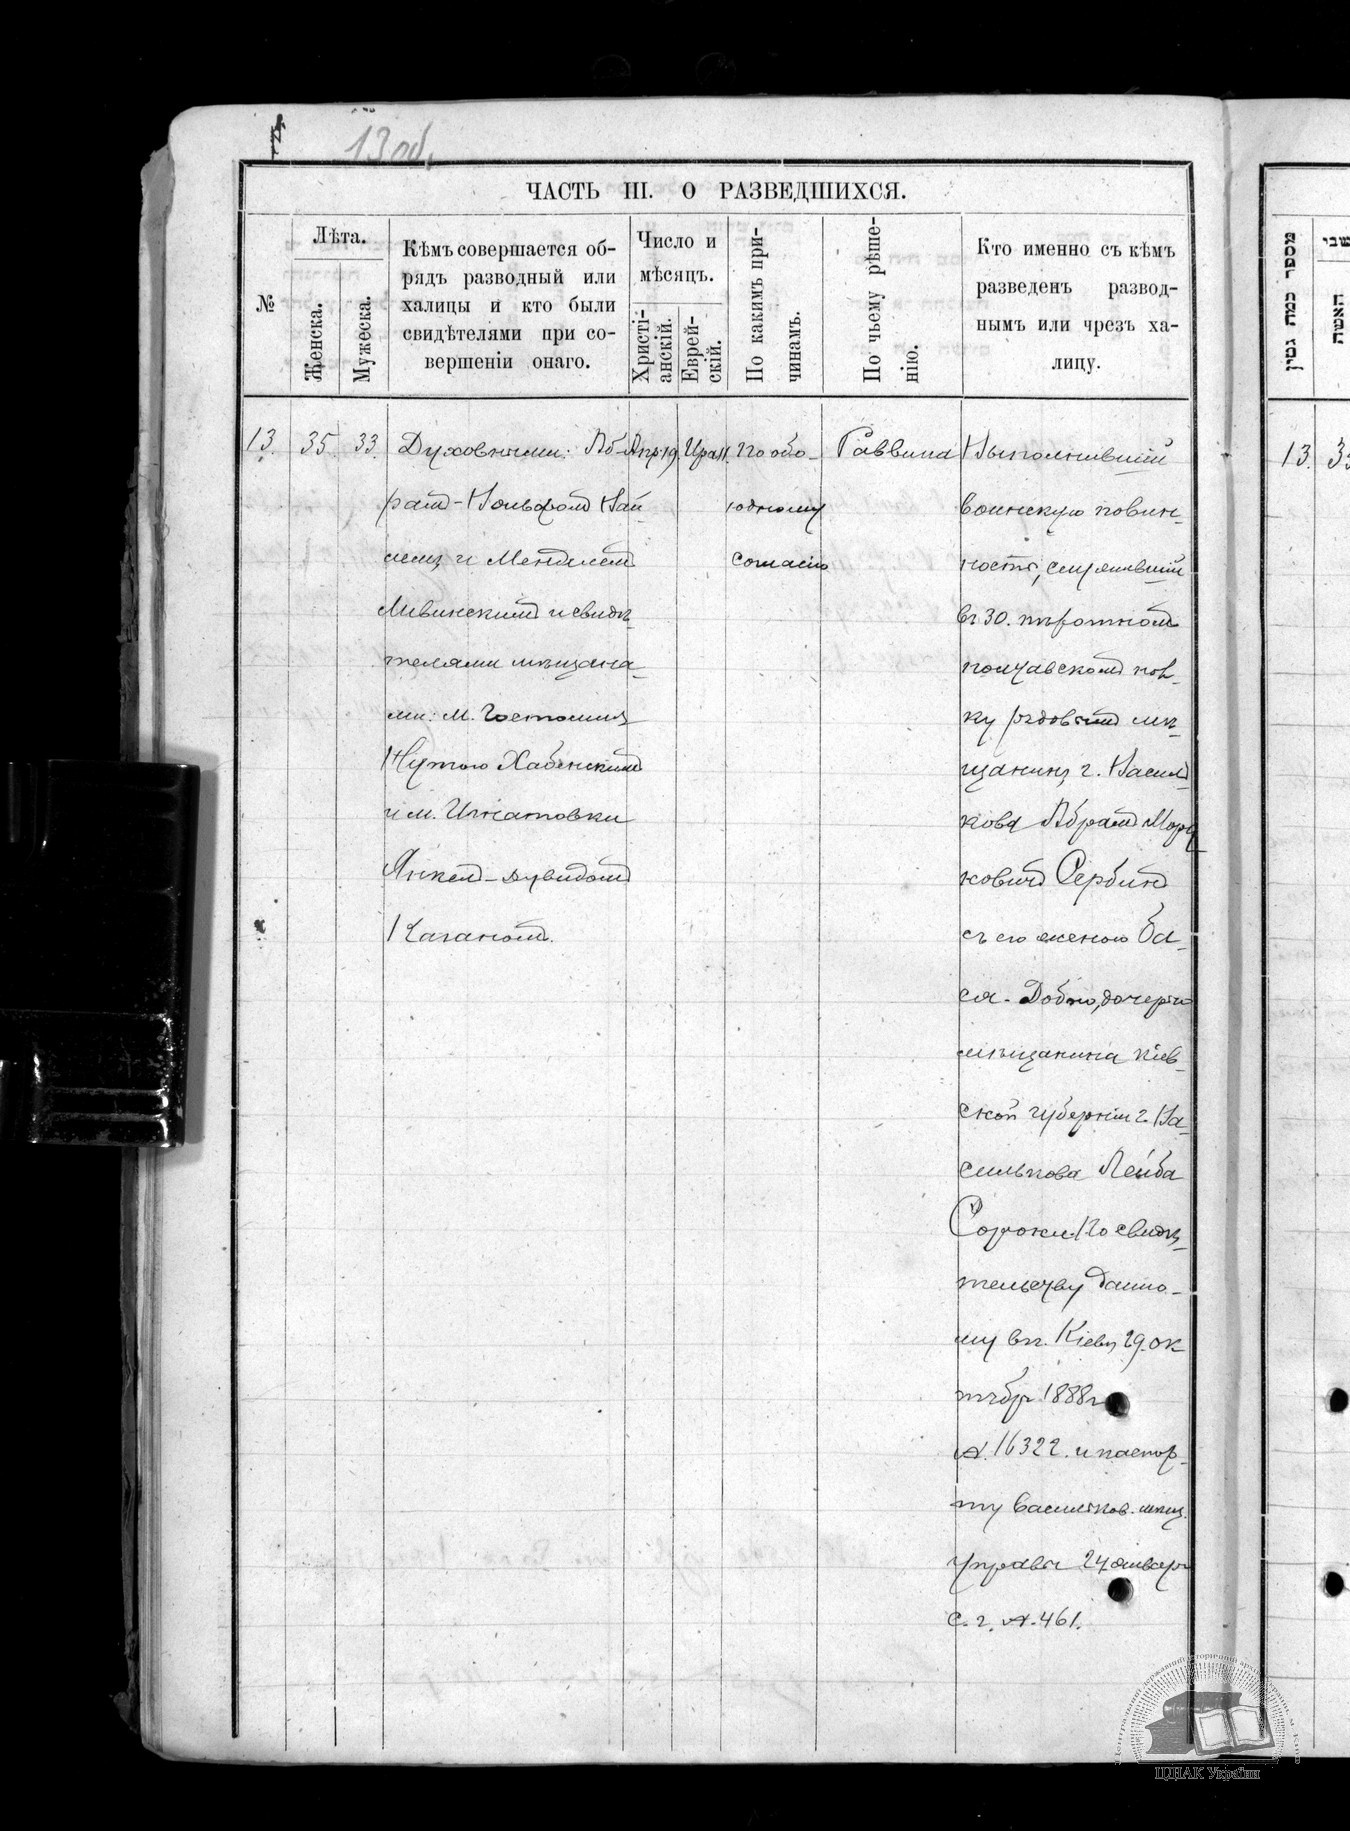 13 об.
ЧАСТЬ III. О РАЗВЕДШИХСЯ.
№
Лѣта.
Женска.
Мужеска.
Кѣмъ совершается об-
рядъ разводный или
халицы и кто были
свидѣтелями при со-
вершеніи онаго.
Число и
мѣсяцъ.
Христі-
анскій.
Еврей-
скій.
По какимъ при-
чинамъ.
По чьему рѣше-
нію.
Кто именно съ кѣмъ
разведенъ развод-
нымъ или чрезъ ха-
лицу.
13.
35.
33.
Духовными: Аб-
рамъ-Вольфомъ
и Менделемъ
и свидѣ-
телями мѣщана-
ми: м. Гостомля
Нутою Хабенскимъ
и м. Игнатовки
Янкелъ-Дувидомъ
Каганомъ.
Апр. 19.
Ира 11.
По обо-
юдному
согласію
Раввина
Выполнившій
воинскую повин-
ность, служившій
въ 30. пѣхотномъ
полтавскомъ пол-
ку рядовымъ мѣ-
щанинъ г. Василь-
кова АбрамъМорд-
ковичъ Сербинъ
съ его женою Ба-
ся-Добою, дочерью
мѣщанина Кіев-
ской губерніи г. Ва-
силькова Лейба
Сороки. По свидѣ-
тельству данно-
му въ г. Кіевѣ 29. ок
тябр 1888 г
№. 16322. и паспор-
ту Васильков. мѣщ.
управы 24 января
с. г. №. 461.
מספר כמה גטין
האשה
13.
ЦДІАК України